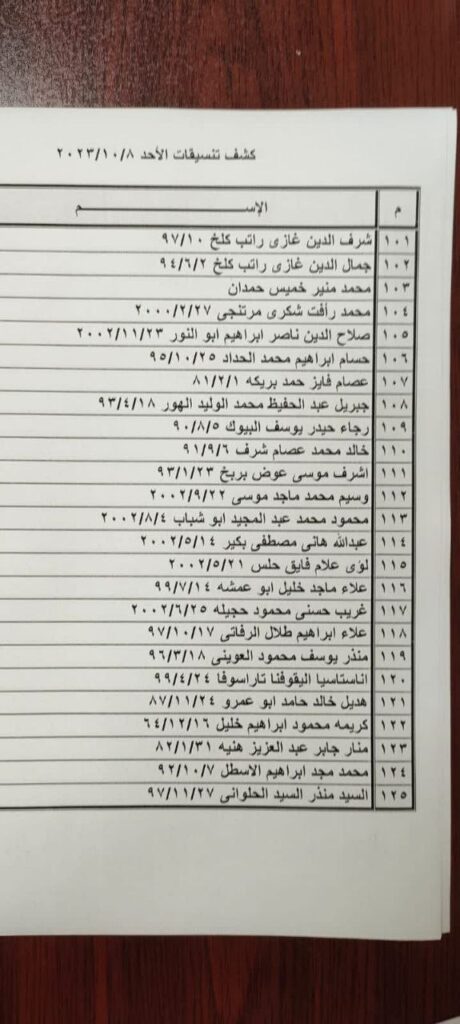 كشف تنسيقات الأحد ٢٠٢٣/١٠/٨
م الإســـــــم
١٠١ شرف الدين غازى راتب كلخ ٩٧/١٠
١٠٢ جمال الدين غازى راتب كلخ ٩٤/٦/٢
١٠٣ محمد منير خميس حمدان
١٠٤ محمد رأفت شكرى مرتنجى ٢٠٠٠/٢/٢٧
١٠٥ صلاح الدين ناصر ابراهيم ابو النور ٢٠٠٢/١١/٢٣
١٠٦ حسام ابراهيم محمد الحداد ٩٥/١٠/٢٥
١٠٧ عصام فايز حمد بريكه ٨١/٢/١
١٠٨ جبريل عبد الحفيظ محمد الوليد الهور ٩٣/٤/١٨
١٠٩ رجاء حيدر يوسف البيوك ٩٠/٨/٥
١١٠ خالد محمد عصام شرف ٩١/٩/٦
١١١ اشرف موسى عوض بريخ ٩٣/١/٢٣
١١٢ وسيم محمد ماجد موسى ٢٠٠٢/٩/٢٢
١١٣ محمود محمد عبد المجيد ابو شباب ٢٠٠٢/٨/٤
١١٤ عبدالله هانى مصطفى بكير ٢٠٠٢/٥/١٤
١١٥ لؤى علام فايق حلس ٢٠٠٢/٥/٢١
١١٦ علاء ماجد خليل ابو عمشه ٩٩/٧/١٤
١١٧ غريب حسنى محمود حجيله ٢٠٠٢/٦/٢٥
١١٨ علاء ابراهيم طلال الرفاتى ٩٧/١٠/١٧
١١٩ منذر يوسف محمود العوينى ٩٦/٣/١٨
١٢٠ اناستاسيا اليقوفنا تاراسوفا ٩٩/٤/٢٤
١٢١ هديل خالد حامد ابو عمرو ٨٧/١١/٢٤
١٢٢ كريمه محمود ابراهيم خليل ٦٤/١٢/١٦
١٢٣ منار جابر عبد العزيز هنيه ٨٢/١/٣١
١٢٤ محمد مجد ابراهيم الاسطل ٩٢/١٠/٧
١٢٥ السيد منذر السيد الحلوانى ٩٧/١١/٢٧